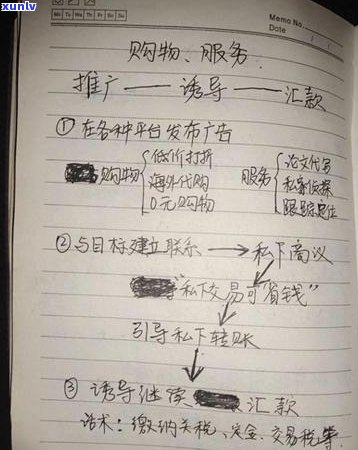 xunlv
Mo Tu We Th Fr Sa Su
Memo No.
Date / /
购物、服务
推广——诱导——汇款
① 在各种平台发布广告
购物 { 低价打折 服务 { 论文代写
海外代购 私家侦探
0元购物 跟踪定位
② 与目标建立联系 → 私下商议
“私下交易可省钱”
引导私下转账
③ 诱导继续 汇款
话术：缴纳关税、定金、交易税等